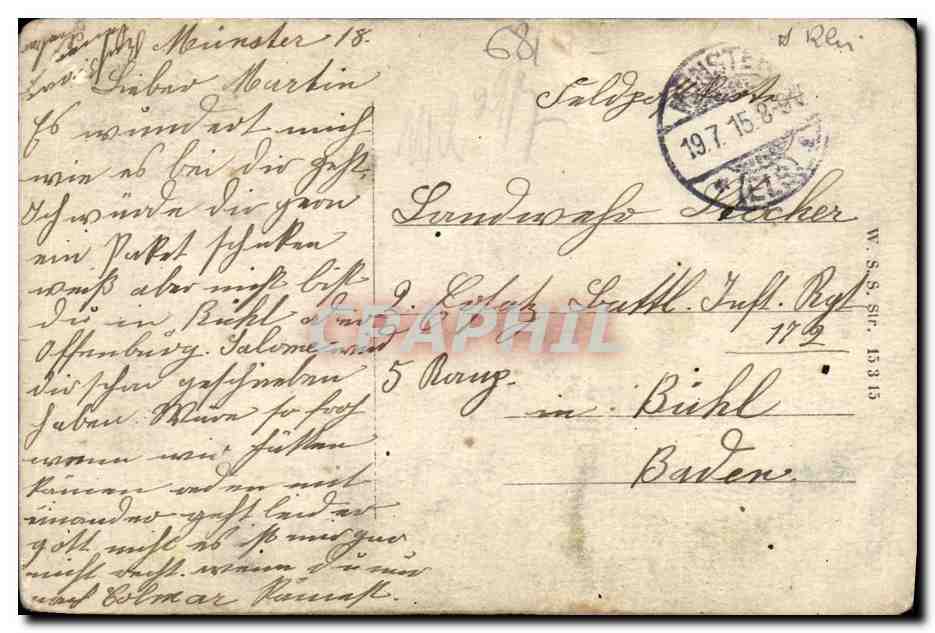 Münster 18.
Lieber Martin
Es wundert mich
wie es bei dir geht.
Ich würde dir gern
ein Paket schicken
weiß aber nicht bist
du in Bühl oder
Offenburg. Salome wird
dir schon geschrieben
haben. Wäre so froh
wenn wir hätten
können reden mit
einander geht leider
Gott nicht es ist mir gar
nicht recht. wenn du nur
nach Colmar kämest.
681
Feldpostkarte
MÜNSTER
19.7.15.8-9
* (ELS.)
Landwehr
2. Ersatz Battl. Inft. Rgt
172
5 Komp.
in Bühl
Baden.
W. S. S. Str. 15 3 15
CPAPHIL